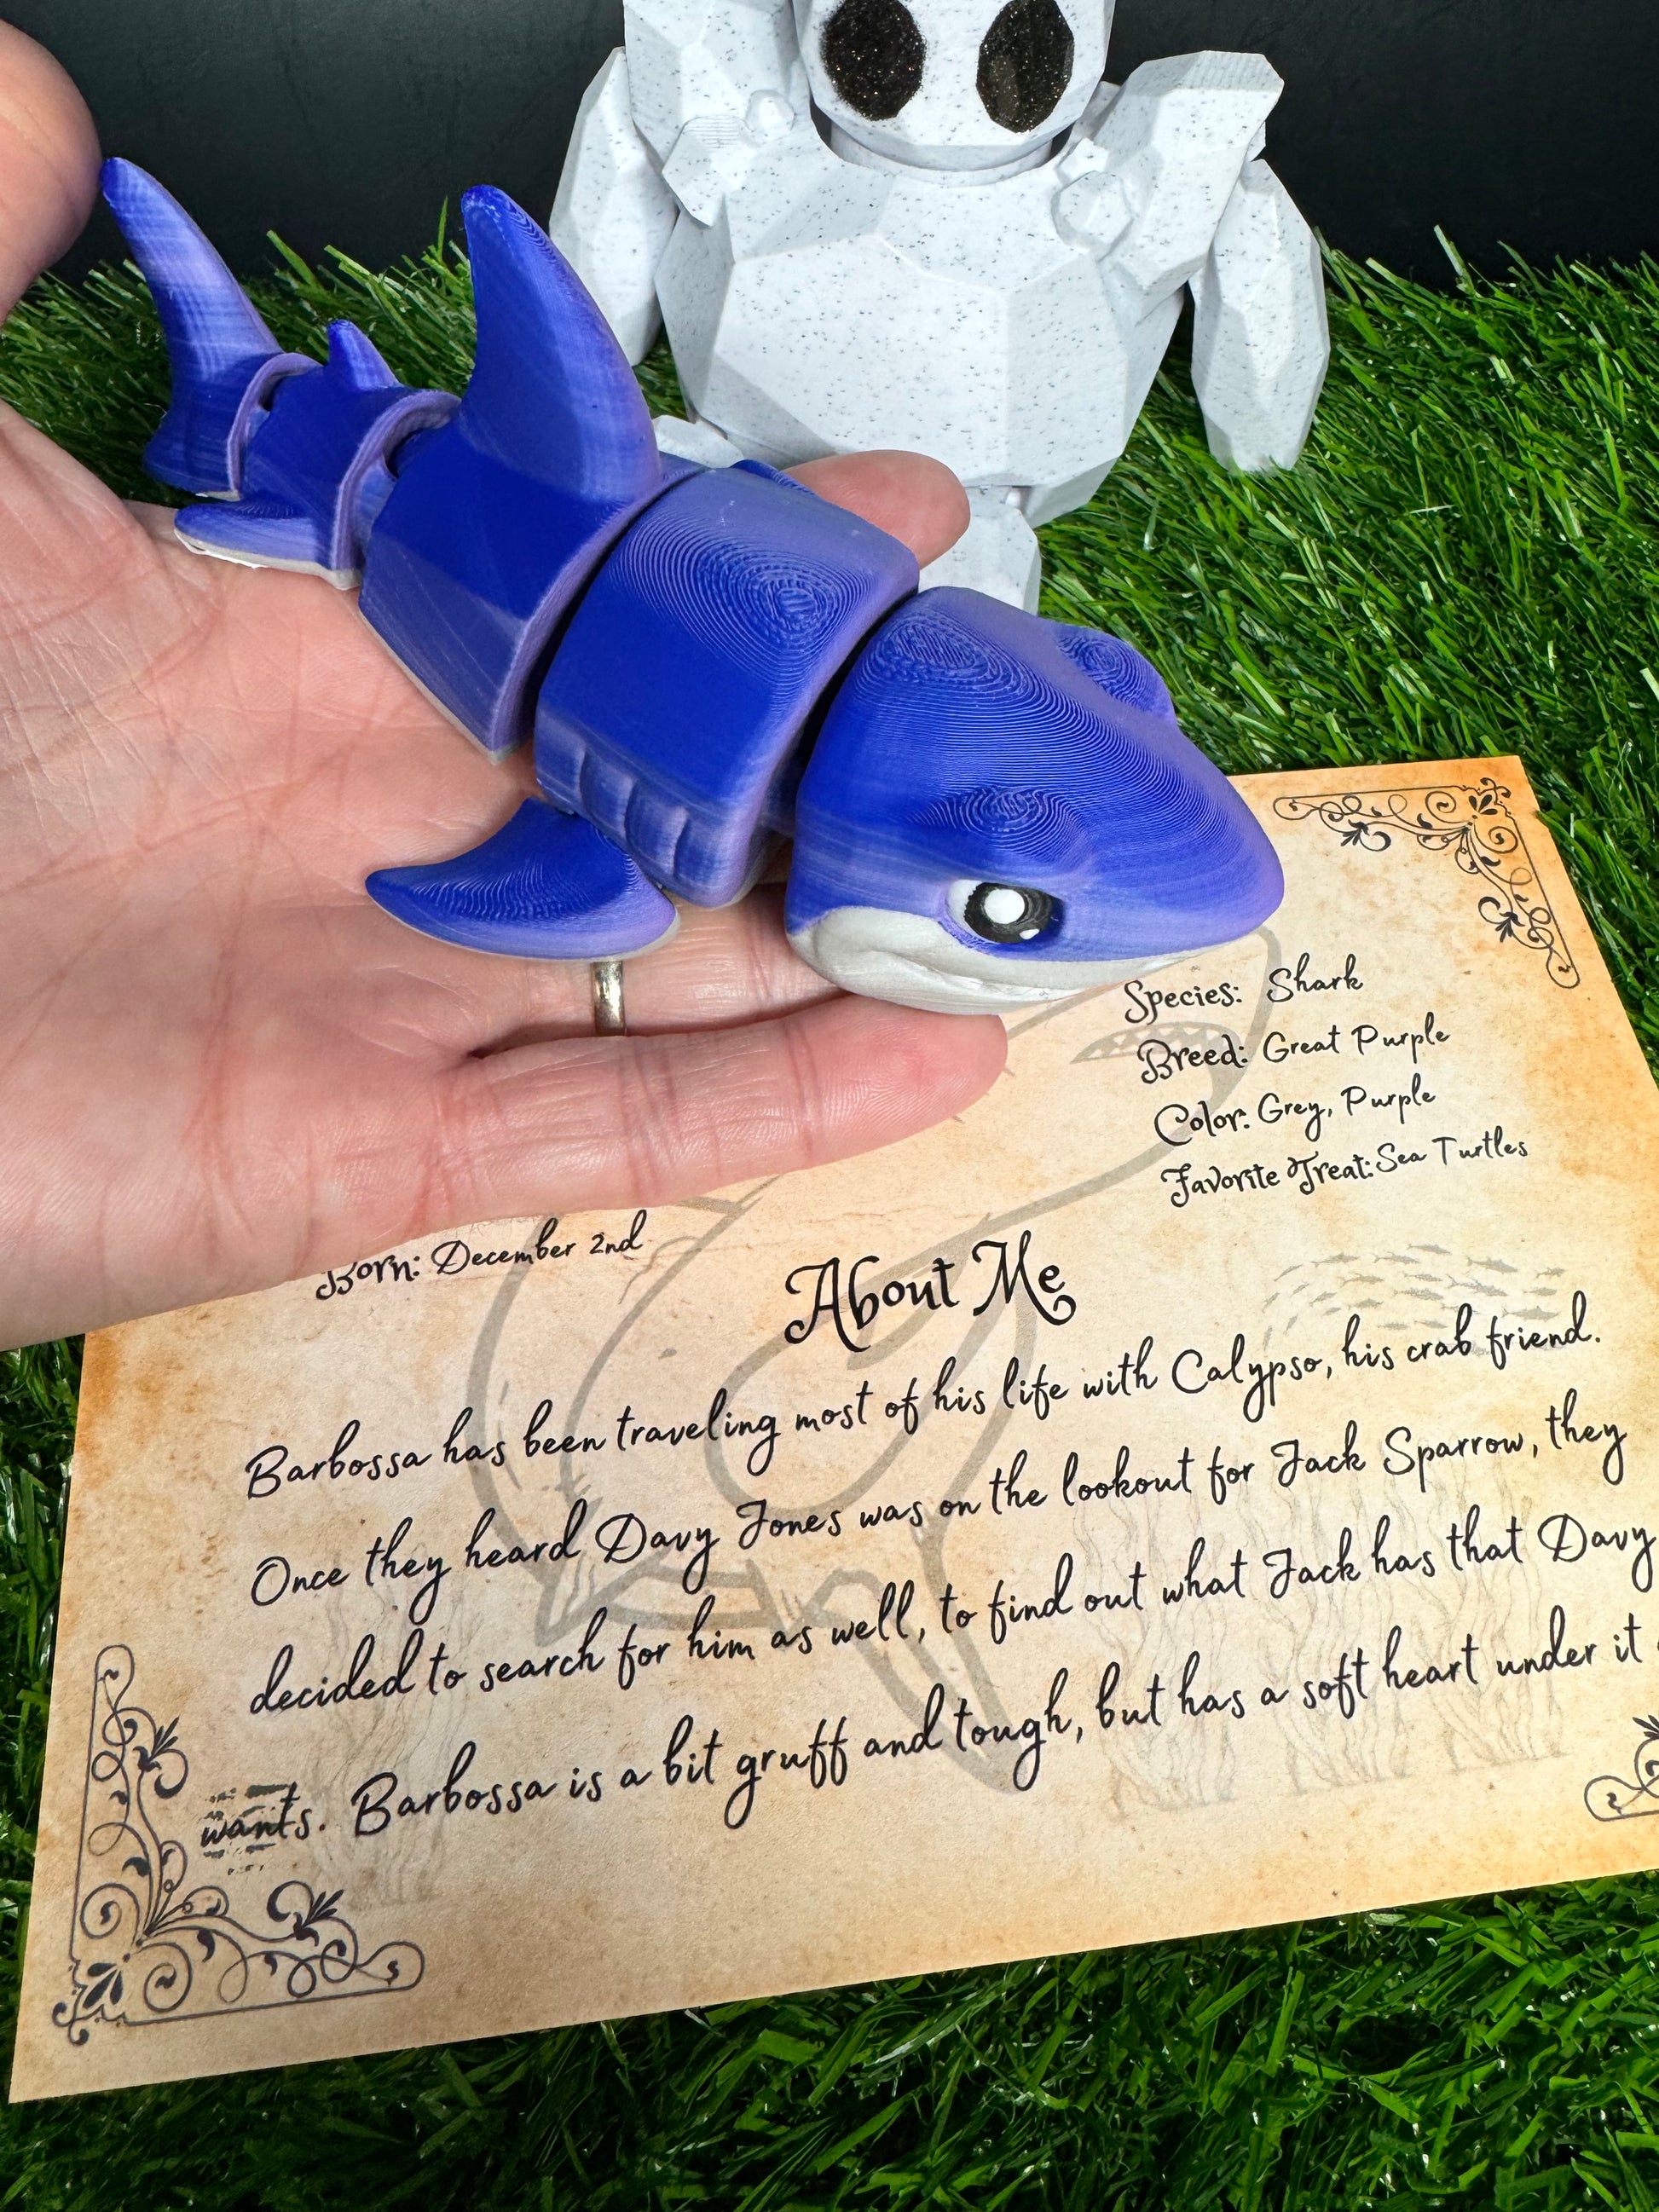 Species: Shark
Breed: Great Purple
Color: Grey, Purple
Favorite Treat: Sea Turtles
Born: December 2nd
About Me
Barbossa has been traveling most of his life with Calypso, his crab friend.
Once they heard Davy Jones was on the lookout for Jack Sparrow, they
decided to search for him as well, to find out what Jack has that Davy
wants. Barbossa is a bit gruff and tough, but has a soft heart under it